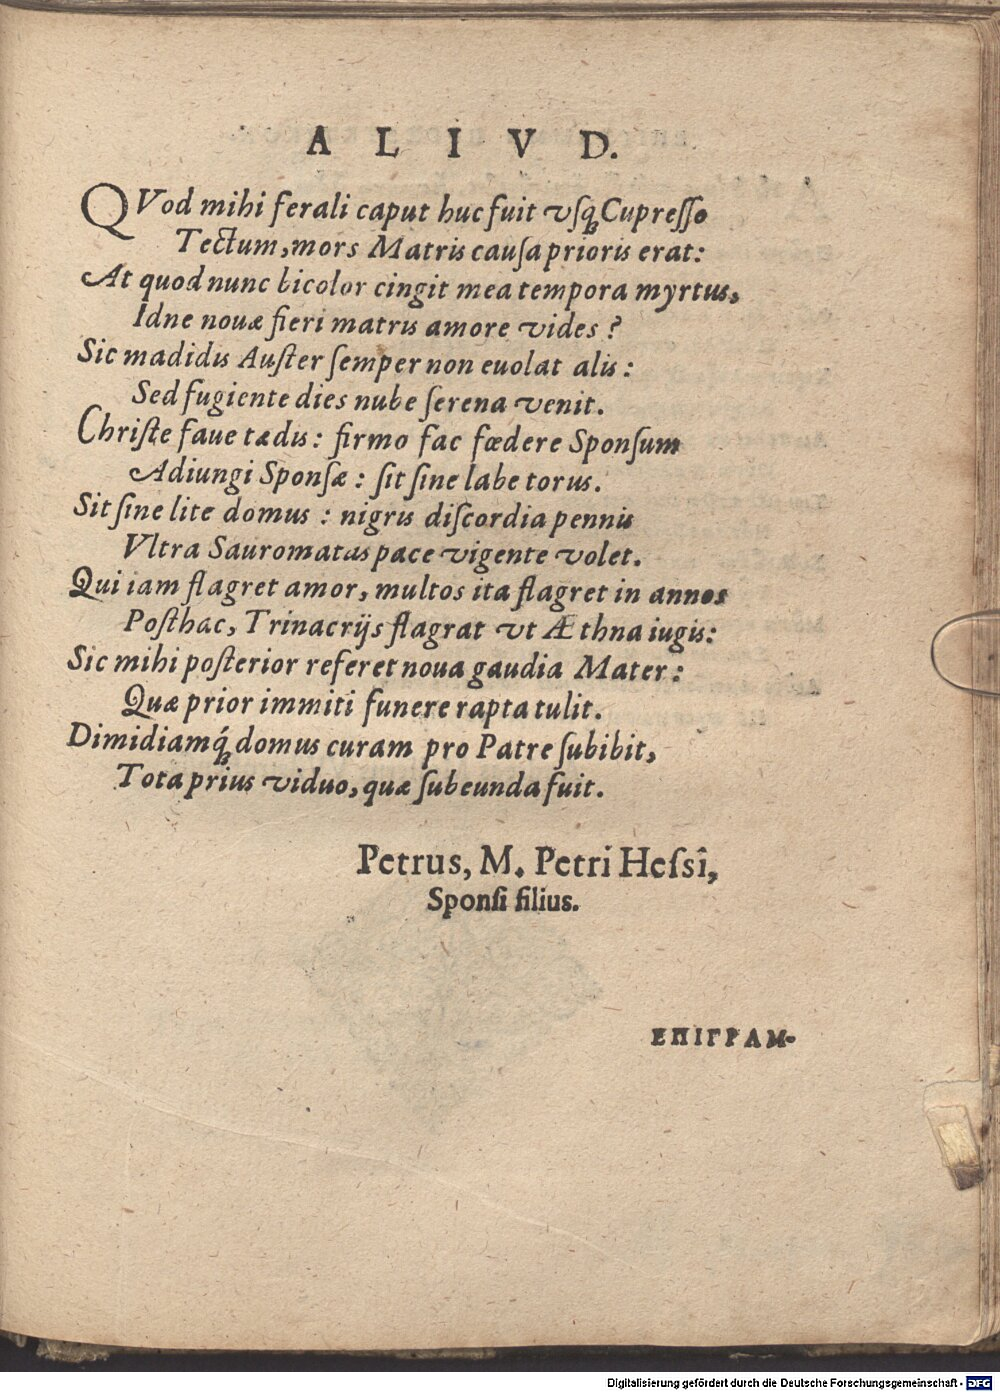 ALIVD.
QVod mihi ferali caput huc fuit vsq́ꝫ Cupresso
Tectum, mors Matris causa prioris erat:
At quod nunc bicolor cingit mea tempora myrtus,
Idne nouæ fieri matris amore vides?
Sic madidis Auster semper non euolat alis:
Sed fugiente dies nube serena venit.
Christe faue tædis: firmo fac fœdere Sponsum
Adiungi Sponsæ: sit sine labe torus.
Sit sine lite domus: nigris discordia pennis
Vltra Sauromatas pace vigente volet.
Qui iam flagret amor, multos ita flagret in annos
Posthac, Trinacrijs flagrat vt Æthna iugis:
Sic mihi posterior referet noua gaudia Mater:
Quæ prior immiti funere rapta tulit.
Dimidiamq́ꝫ domus curam pro Patre subibit,
Tota prius viduo, quæ subeunda fuit.
Petrus, M. Petri Hessî,
Sponsi filius.
ΕΠΙΓΡΑΜ-
Digitalisierung gefördert durch die Deutsche Forschungsgemeinschaft - DFG